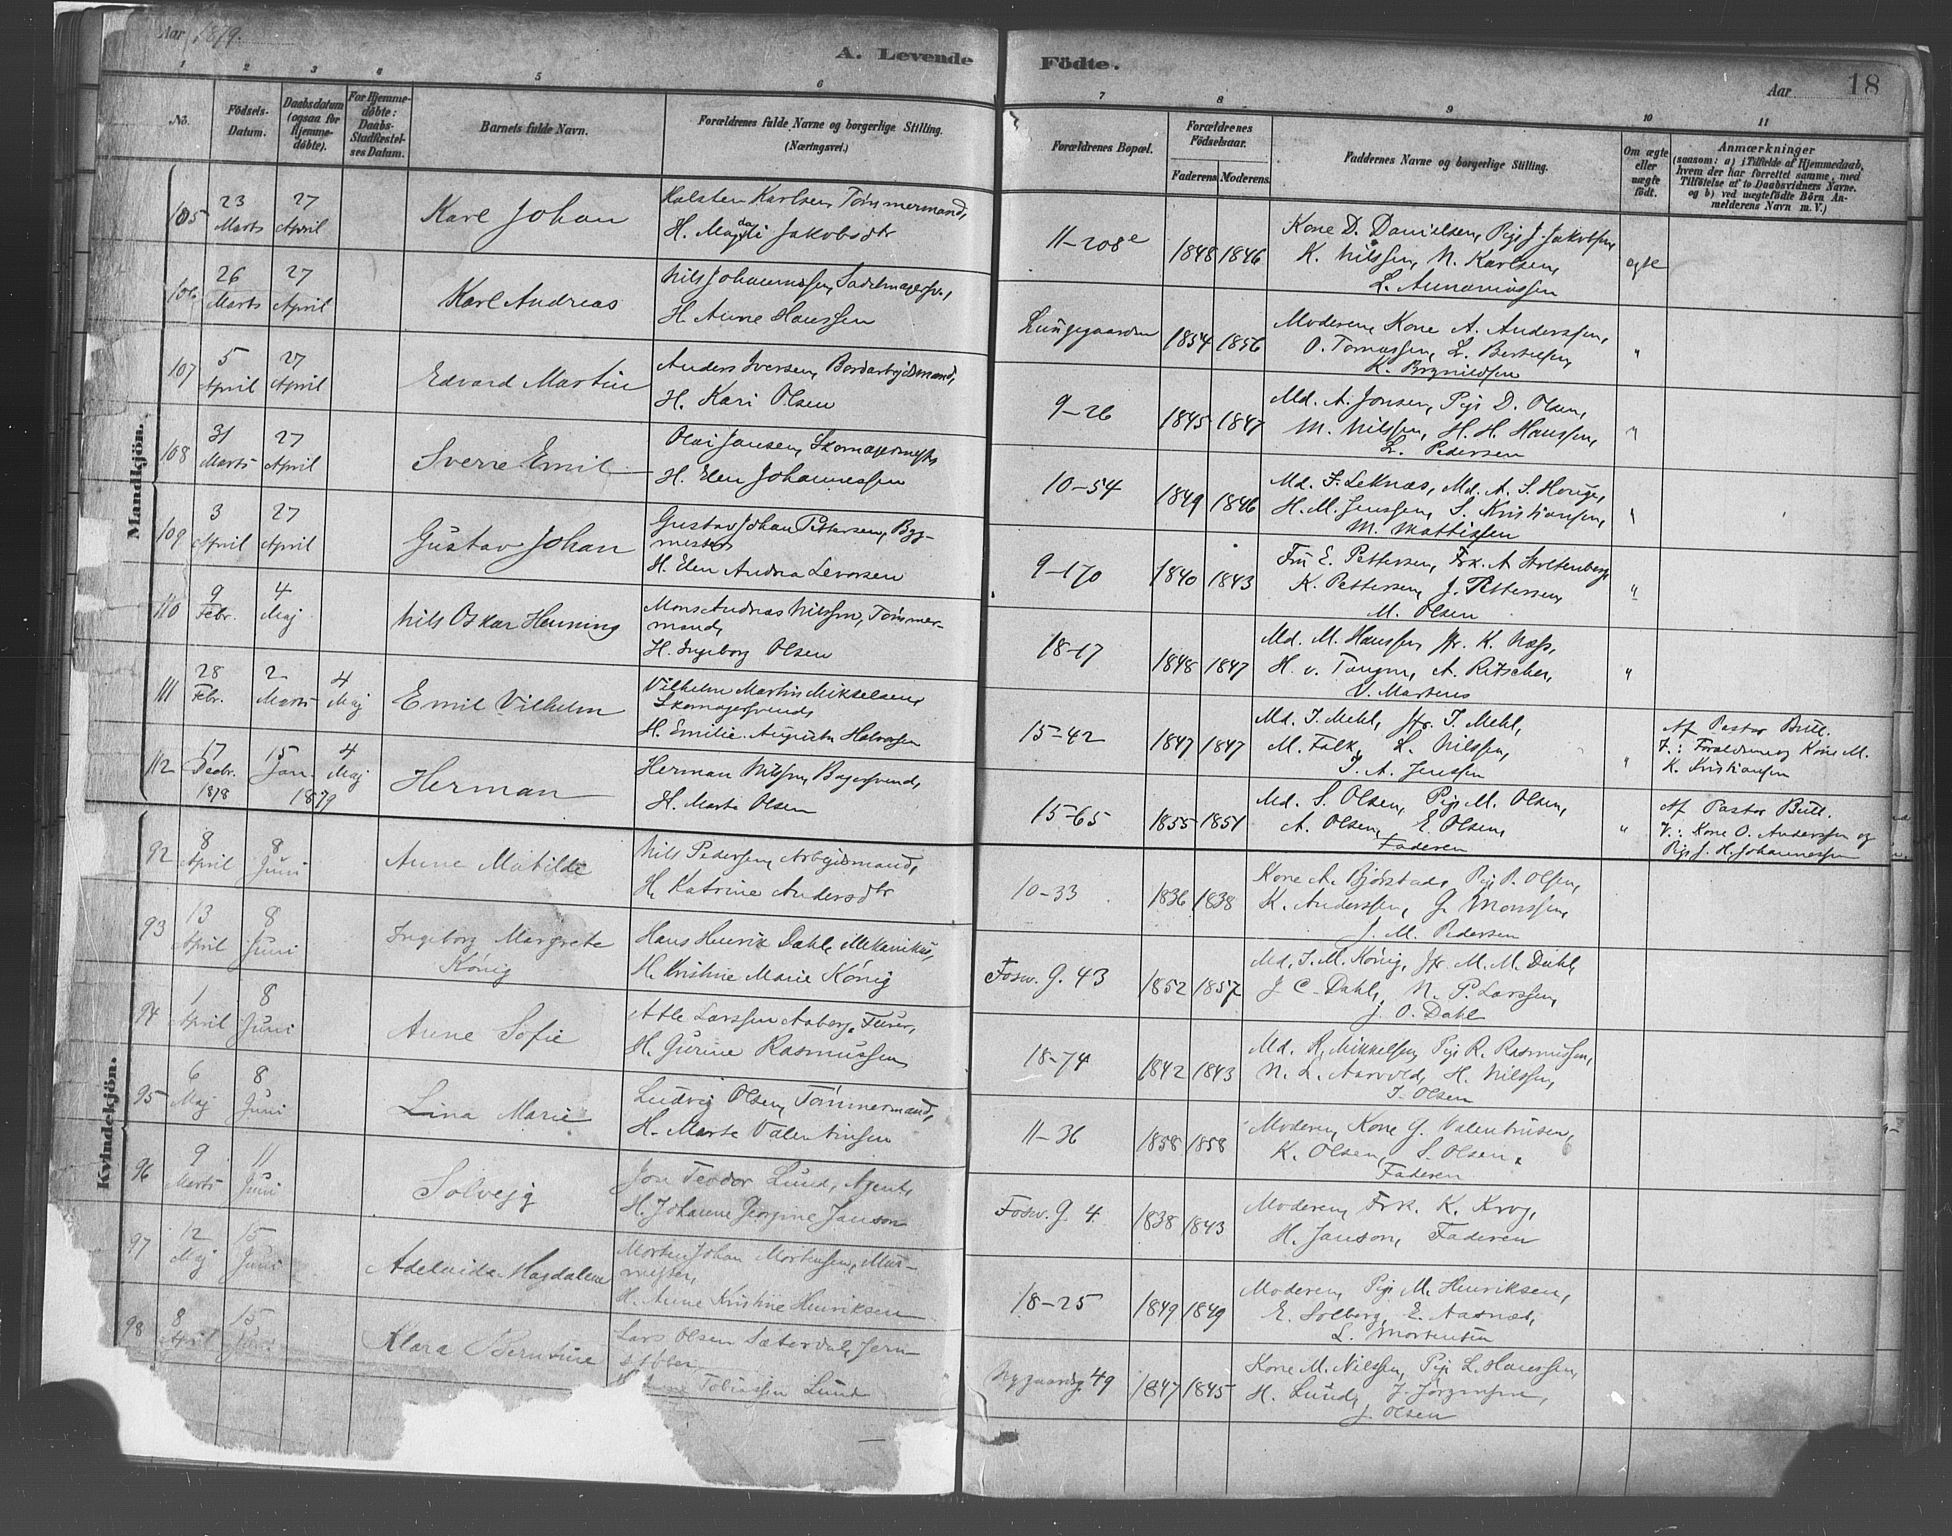 Aar 1879.
A. Levende Födte.
Aar 18
1 2 3 4 5 6 7 8 9 10 11
No.
Födsels-Datum.
Daabsdatum (ogsaa for Hjemme-döbte).
For Hjemme-döbte: Daabs-Stadfæstel-ses Datum.
Barnets fulde Navn.
Forældrenes fulde Navne og borgerlige Stilling. (Næringsvei.)
Forældrenes Bopæl.
Forældrenes Födselsaar.
Faderens Moderens.
Faddernes Navne og borgerlige Stilling.
Om ægte eller uægte födt.
Anmærkninger
(saasom: a) i Tilfælde af Hjemmedaab, hvem der har forrettet samme, med Tilföielse af to Daabsvidners Navne. og b) ved uægtefödte Börn An-melderens Navn m. V.)
Mandkjön.
105 23 Marts 27 April Karl Johan
Halsten Karlsen, Tömmermand,
H. Magdali Jakobsdtr
11-208e 1848 1846
Kone D. Danielsen, Pige J. Jakobsen,
K. Nilssen, N. Karlsen,
ægte
106 26 Marts 27 April Karl Andreas
Nils Johannessen, Sadelmagersv.,
H. Anne Hanssen
Lungegaarden 1854 1856
Moderen, Kone A. Anderssen,
O. Tomassen, L. Bertelsen,
K. Brynildsen
"
107 5 April 27 April Edvard Martin
Anders Iversen, Bordarbeidsmand,
H. Kari Olsen
9-26 1845 1847
Md. A. Jonsen, Pige D. Olsen,
M. Nilssen, H. H. Hanssen,
L. Pedersen
"
108 31 Marts 27 April Sverre Emil
Olai Jansen, Skomagermester
H. Elen Johannessen
10-54 1849 1846
Md. F. Leknæs, Md. A. S. Houge,
H. M. Jenssen, S. Kristiansen,
M. Mattissen
"
109 3 April 27 April Gustav Johan
Gustav Johan Pettersen, Byg-
mester
H. Elen Andrea Levorsen
9-170 1840 1843
Fru E. Pettersen, Frk. A Stoltenberg,
K. Pettersen, J. Pettersen,
M. Olsen
"
110 9 Febr. 4 Maj Nils Oskar Henning
Mons Andreas Nilssen, Tömmer-
mand,
H. Ingeborg Olsen
18-17 1848 1847
Md. M. Hanssen, Jfr. K. Næss,
H. v. Tangen, A. Ritscher,
V. Martens
"
111 28 Febr. 2 Marts 4 Maj Emil Vilhelm
Vilhelm Martin Mikkelsen,
Skomagersvend,
H. Emilie Augusta Halvorsen
15-42 1847 1847
Md. I. Mehl, Jfr. I. Mehl,
M. Falk, L. Nilssen,
J. A. Jenssen
"
Af Pastor Bull.
V.: Forældrene, Kone M.
K. Kristiansen
112 17 Decbr. 1878 15 Jan. 1879 4 Maj Herman
Herman Nilssen, Bagersvend,
H. Marta Olsen
15-65 1855 1851
Md. S. Olsen, Pige M. Olsen,
A. Olsen, E. Olsen,
Faderen
"
Af Pastor Bull.
V.: Kone O. Anderssen og
Pige J. H. Johannessen
Kvindekjön.
92 8 April 8 Juni Anne Matilde
Nils Pedersen, Arbeidsmand,
H. Katrine Andersdtr
10-33 1836 1838
Kone A. Björstad, Pige P. Olsen,
K. Anderssen, G. Monssen,
J. M. Pedersen
93 13 April 8 Juni Ingeborg Margrete König
Hans Henrik Dahl, Mekanikus,
H. Kristine Marie König
Fosw. G. 43 1852 1857
Md. I. M. König, Jfr M. M. Dahl,
J C. Dahl, N. P. Larssen,
J. O. Dahl
94 1 April 8 Juni Anne Sofie
Atle Larssen Aaberg, Furer,
H. Gurine Rasmussen
18-74 1842 1843
Md. R. Mikkelsen, Pige R. Rasmussen,
N. L. Aarvold, H. Nilssen,
I. Olsen
95 6 Maj 8 Juni Lina Marie
Ludvig Olsen, Tömmermand,
H. Marte Valentinsen
11-36 1858 1858
Moderen, Kone G. Valentinsen,
K. Olsen, S. Olsen,
Faderen
96 9 Marts 11 Juni Solvejg
Jon Teodor Lund, Agent,
H. Johanne Georgine Janson
Fosw. G 4. 1838 1843
Moderen, Frk. K. Krog,
H. Janson, Faderen
97 12 Maj 15 Juni Adelaida Magdalene
Morten Johan Mortensen, Mur-
mester,
H. Anne Kristine Henriksen
18-25 1849 1849
Moderen, Pige M. Henriksen,
E. Solberg, E. Aasnæs,
L. Mortensen
98 8 April 15 Juni Klara Berntine
Lars Olsen Sæterdal, Jern
stöber
Tobiassen Lund
Nygaardsg. 49 1847 1845
Kone M. Nilssen, Pige L. Hanssen,
H. Lund, J. Jörgensen,
J. Olsen